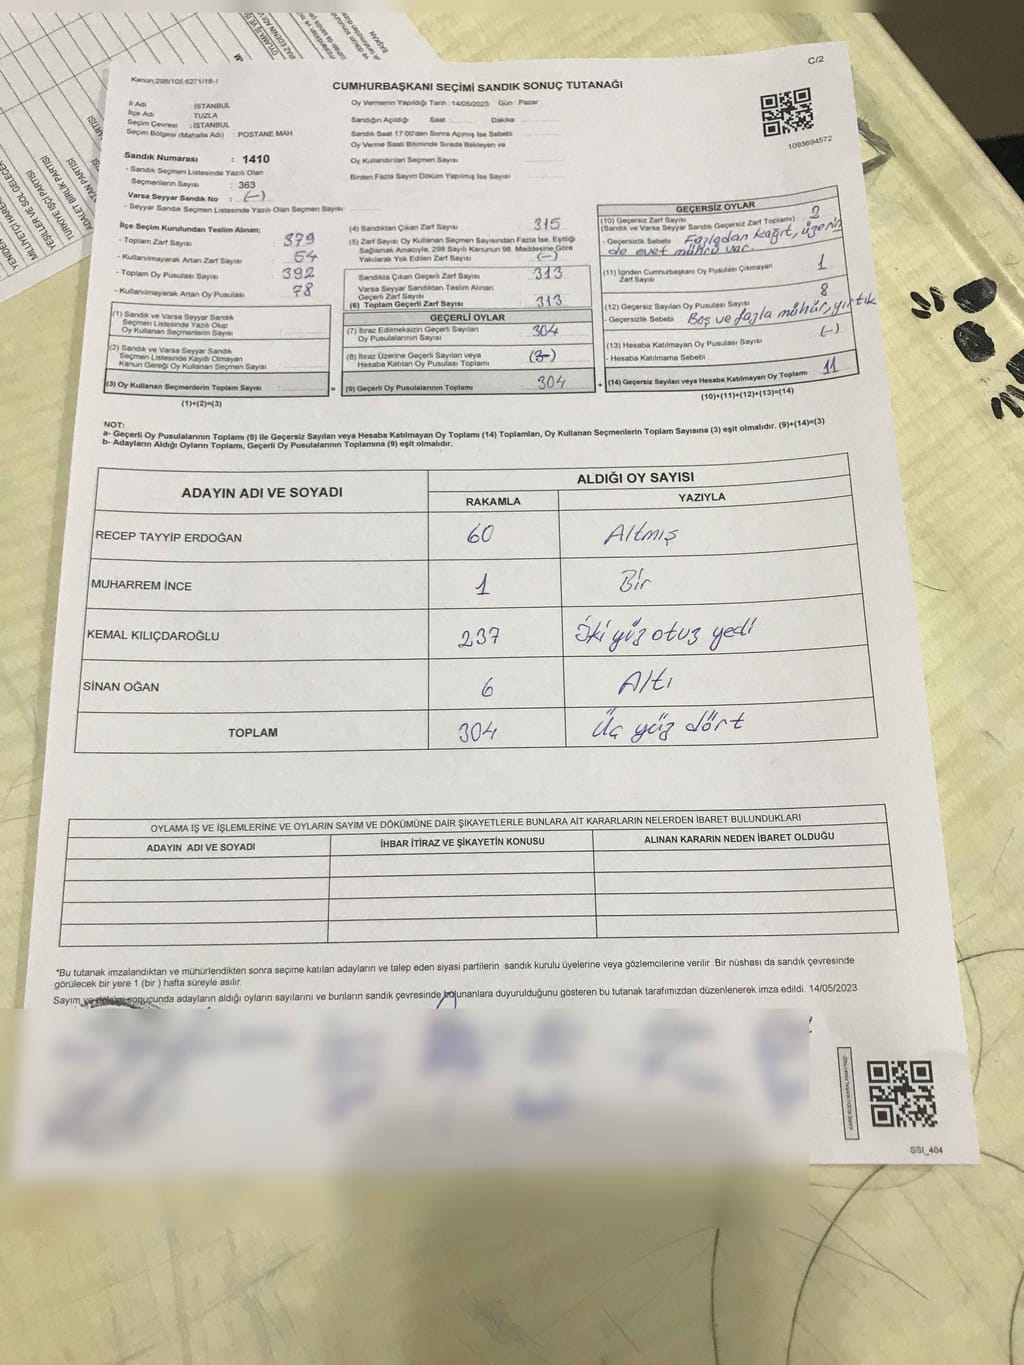 C/2
Kanun:298/105:6271/18-1
CUMHURBAŞKANI SEÇİMİ SANDIK SONUÇ TUTANAĞI
İl Adı : İSTANBUL
İlçe Adı : TUZLA
Seçim Çevresi : İSTANBUL
Seçim Bölgesi (Mahalle Adı) : POSTANE MAH
Sandık Numarası : 1410
- Sandık Seçmen Listesinde Yazılı Olan
Seçmenlerin Sayısı : 363
Varsa Seyyar Sandık No : (-)
- Seyyar Sandık Seçmen Listesinde Yazılı Olan Seçmen Sayısı:
Oy Vermenin Yapıldığı Tarih : 14/05/2023 Gün : Pazar
Sandığın Açıldığı Saat Dakika
Sandık Saat 17:00'den Sonra Açılmış İse Sebebi
Oy Verme Saati Bitiminde Sırada Bekleyen ve
Oy Kullandırılan Seçmen Sayısı
Birden Fazla Sayım Döküm Yapılmış İse Sayısı
1093694572
İlçe Seçim Kurulundan Teslim Alınan;
- Toplam Zarf Sayısı 379
- Kullanılmayarak Artan Zarf Sayısı 64
- Toplam Oy Pusulası Sayısı 392
- Kullanılmayarak Artan Oy Pusulası 78
(1) Sandık ve Varsa Seyyar Sandık
Seçmen Listesinde Yazılı Olup
Oy Kullanan Seçmenlerin Sayısı
(2) Sandık ve Varsa Seyyar Sandık
Seçmen Listesinde Kayıtlı Olmayan
Kanun Gereği Oy Kullanan Seçmen Sayısı
(3) Oy Kullanan Seçmenlerin Toplam Sayısı =
(1)+(2)=(3)
(4) Sandıktan Çıkan Zarf Sayısı 315
(5) Zarf Sayısı Oy Kullanan Seçmen Sayısından Fazla İse, Eşitliği
Sağlamak Amacıyla, 298 Sayılı Kanunun 98. Maddesine Göre
Yakılarak Yok Edilen Zarf Sayısı (-)
Sandıkta Çıkan Geçerli Zarf Sayısı 313
Varsa Seyyar Sandıktan Teslim Alınan
Geçerli Zarf Sayısı
(6) Toplam Geçerli Zarf Sayısı 313
GEÇERLİ OYLAR
(7) İtiraz Edilmeksizin Geçerli Sayılan
Oy Pusulalarının Sayısı 304
(8) İtiraz Üzerine Geçerli Sayılan veya
Hesaba Katılan Oy Pusulası Toplamı (-)
(9) Geçerli Oy Pusulalarının Toplamı 304 +
GEÇERSİZ OYLAR
(10) Geçersiz Zarf Sayısı 2
(Sandık ve Varsa Seyyar Sandık Geçersiz Zarf Toplamı)
- Geçersizlik Sebebi Fazladan kağıt, üzerin
de evet mührü var
(11) İçinden Cumhurbaşkanı Oy Pusulası Çıkmayan
Zarf Sayısı 1
(12) Geçersiz Sayılan Oy Pusulası Sayısı 8
- Geçersizlik Sebebi Boş ve fazla mühür, yırtık
(13) Hesaba Katılmayan Oy Pusulası Sayısı (-)
- Hesaba Katılmama Sebebi
(14) Geçersiz Sayılan veya Hesaba Katılmayan Oy Toplamı 11
(10)+(11)+(12)+(13)=(14)
NOT:
a- Geçerli Oy Pusulalarının Toplamı (9) ile Geçersiz Sayılan veya Hesaba Katılmayan Oy Toplamı (14) Toplamları, Oy Kullanan Seçmenlerin Toplam Sayısına (3) eşit olmalıdır. (9)+(14)=(3)
b- Adayların Aldığı Oyların Toplamı, Geçerli Oy Pusulalarının Toplamına (9) eşit olmalıdır.
ADAYIN ADI VE SOYADI
ALDIĞI OY SAYISI
RAKAMLA YAZIYLA
RECEP TAYYİP ERDOĞAN 60 Altmış
MUHARREM İNCE 1 Bir
KEMAL KILIÇDAROĞLU 237 İki yüz otuz yedi
SİNAN OĞAN 6 Altı
TOPLAM 304 Üç yüz dört
OYLAMA İŞ VE İŞLEMLERİNE VE OYLARIN SAYIM VE DÖKÜMÜNE DAİR ŞİKAYETLERLE BUNLARA AİT KARARLARIN NELERDEN İBARET BULUNDUKLARI
ADAYIN ADI VE SOYADI İHBAR İTİRAZ VE ŞİKAYETİN KONUSU ALINAN KARARIN NEDEN İBARET OLDUĞU
*Bu tutanak imzalandıktan ve mühürlendikten sonra seçime katılan adayların ve talep eden siyasi partilerin sandık kurulu üyelerine veya gözlemcilerine verilir .Bir nüshası da sandık çevresinde
görülecek bir yere 1 (bir ) hafta süreyle asılır.
Sayım ve döküm sonucunda adayların aldığı oyların sayılarını ve bunların sandık çevresinde bulunanlara duyurulduğunu gösteren bu tutanak tarafımızdan düzenlenerek imza edildi. 14/05/2023
KARE KODU KARALAMAYINIZ!
SSI_404
YEŞİLLER VE SOL GELECEK
TÜRKİYE İŞÇİ PARTİSİ
ADALET BİRLİK PARTİSİ
BAŞKAN